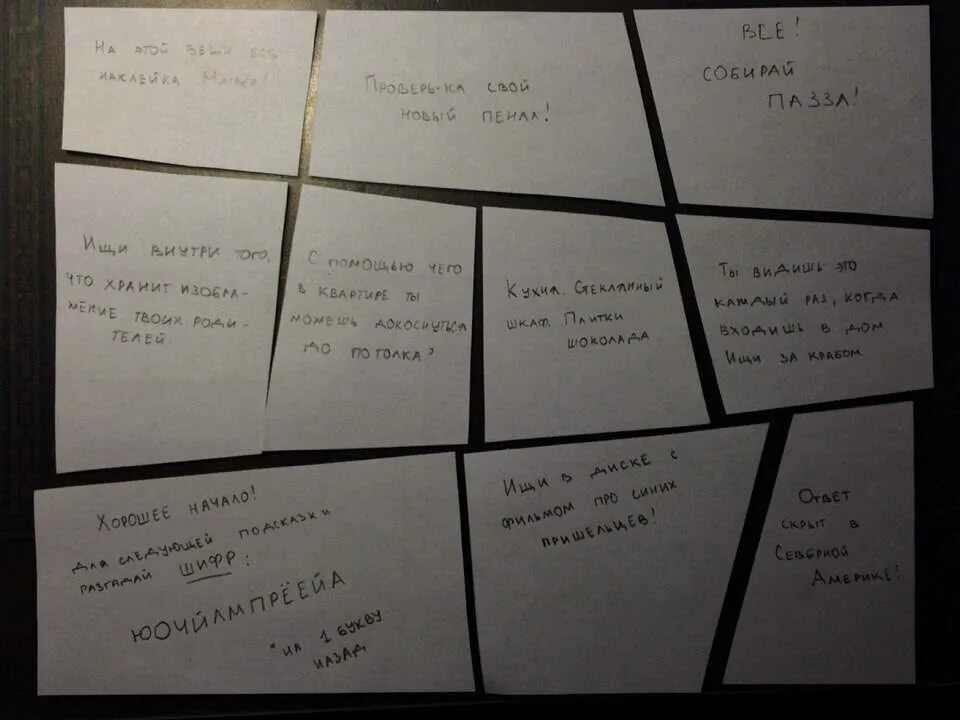 На этой вещи есть
наклейка
Проверь-ка свой
новый пенал!
ВСЕ!
СОБИРАЙ
ПАЗЗЛ!
Ищи внутри того,
что хранит изобра-
жение твоих роди-
телей.
С помощью чего
в квартире ты
можешь докоснуться
до потолка?
Кухня. Стеклянный
шкаф. Плитки
шоколада
Ты видишь это
каждый раз, когда
входишь в дом
Ищи за крабом.
Хорошее начало!
Для следующей подсказки
разгадай шифр:
ЮОЧЙЛМПРЁЕЙА
* на 1 букву
назад
Ищи в диске с
фильмом про синих
пришельцев!
Ответ
скрыт в
Северной
Америке!